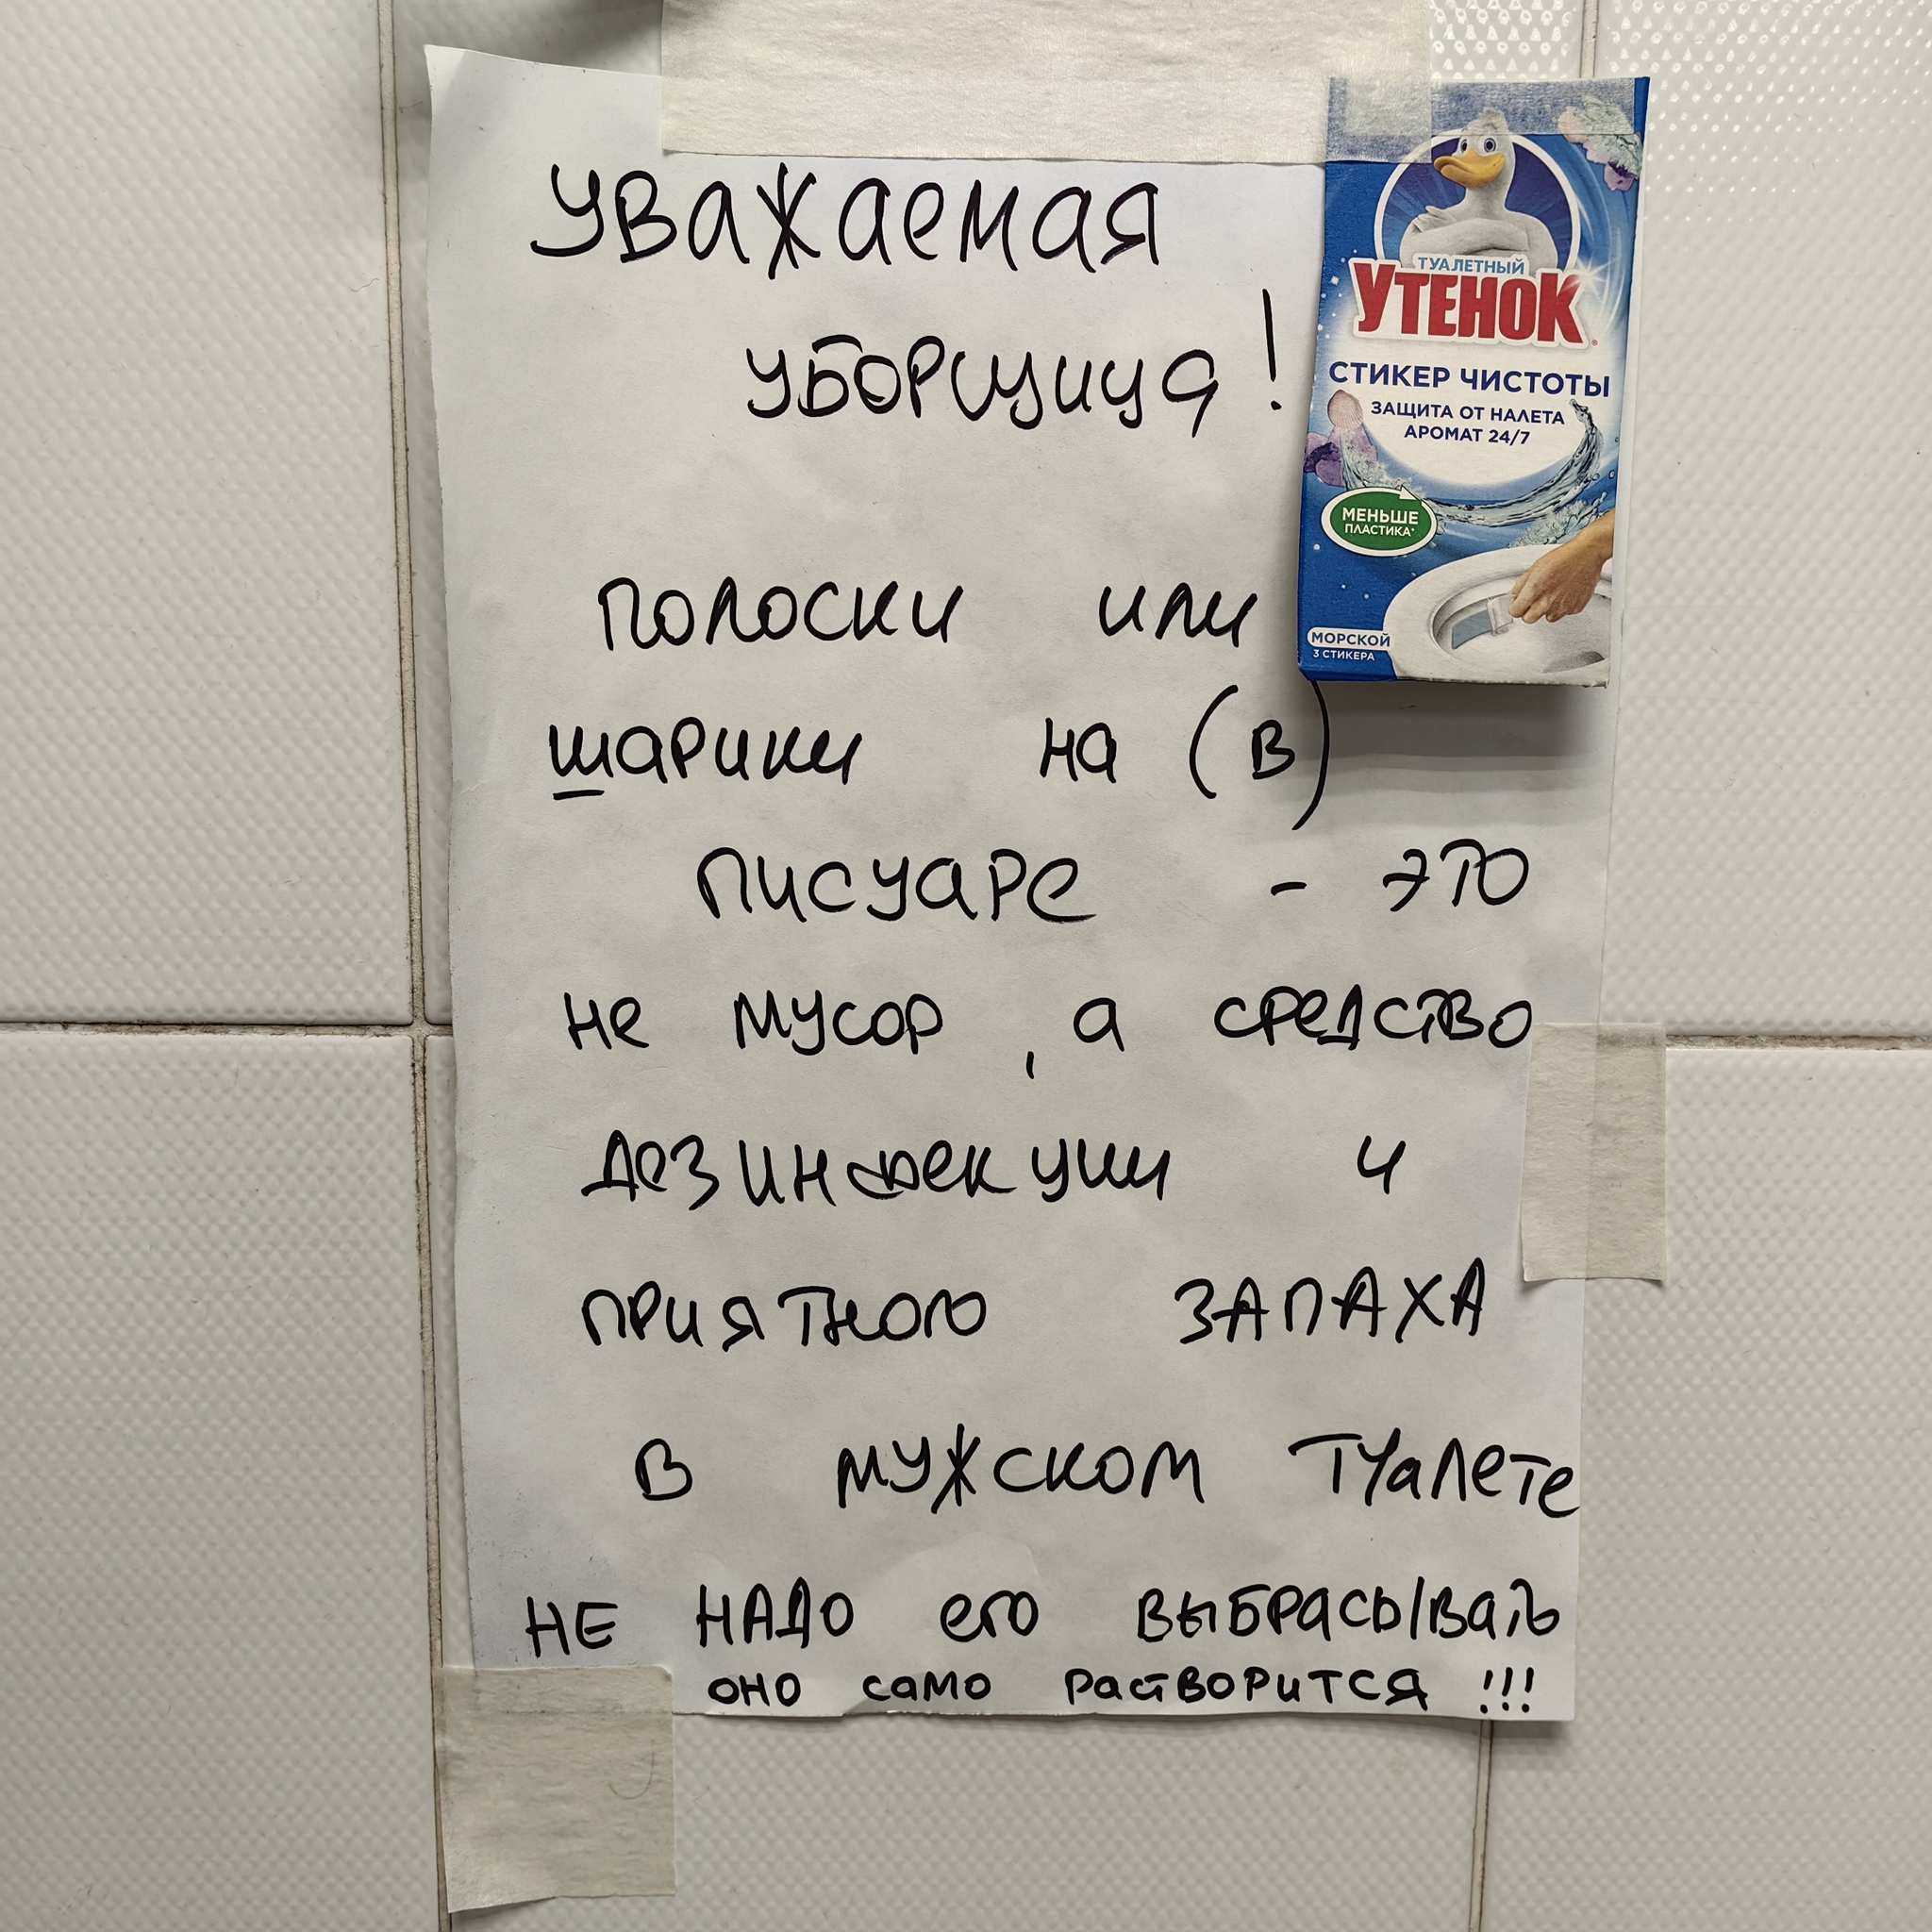 Уважаемая
уборщица!
полоски или
шарики на (в)
писуаре - это
не мусор, а средство
дезинфекции и
приятного ЗАПАХА
в мужском туалете
НЕ НАДО его выбрасывать
оно само растворится !!!
ТУАЛЕТНЫЙ
УТЕНОК
СТИКЕР ЧИСТОТЫ
ЗАЩИТА ОТ НАЛЕТА
АРОМАТ 24/7
МЕНЬШЕ
ПЛАСТИКА*
МОРСКОЙ
3 СТИКЕРА